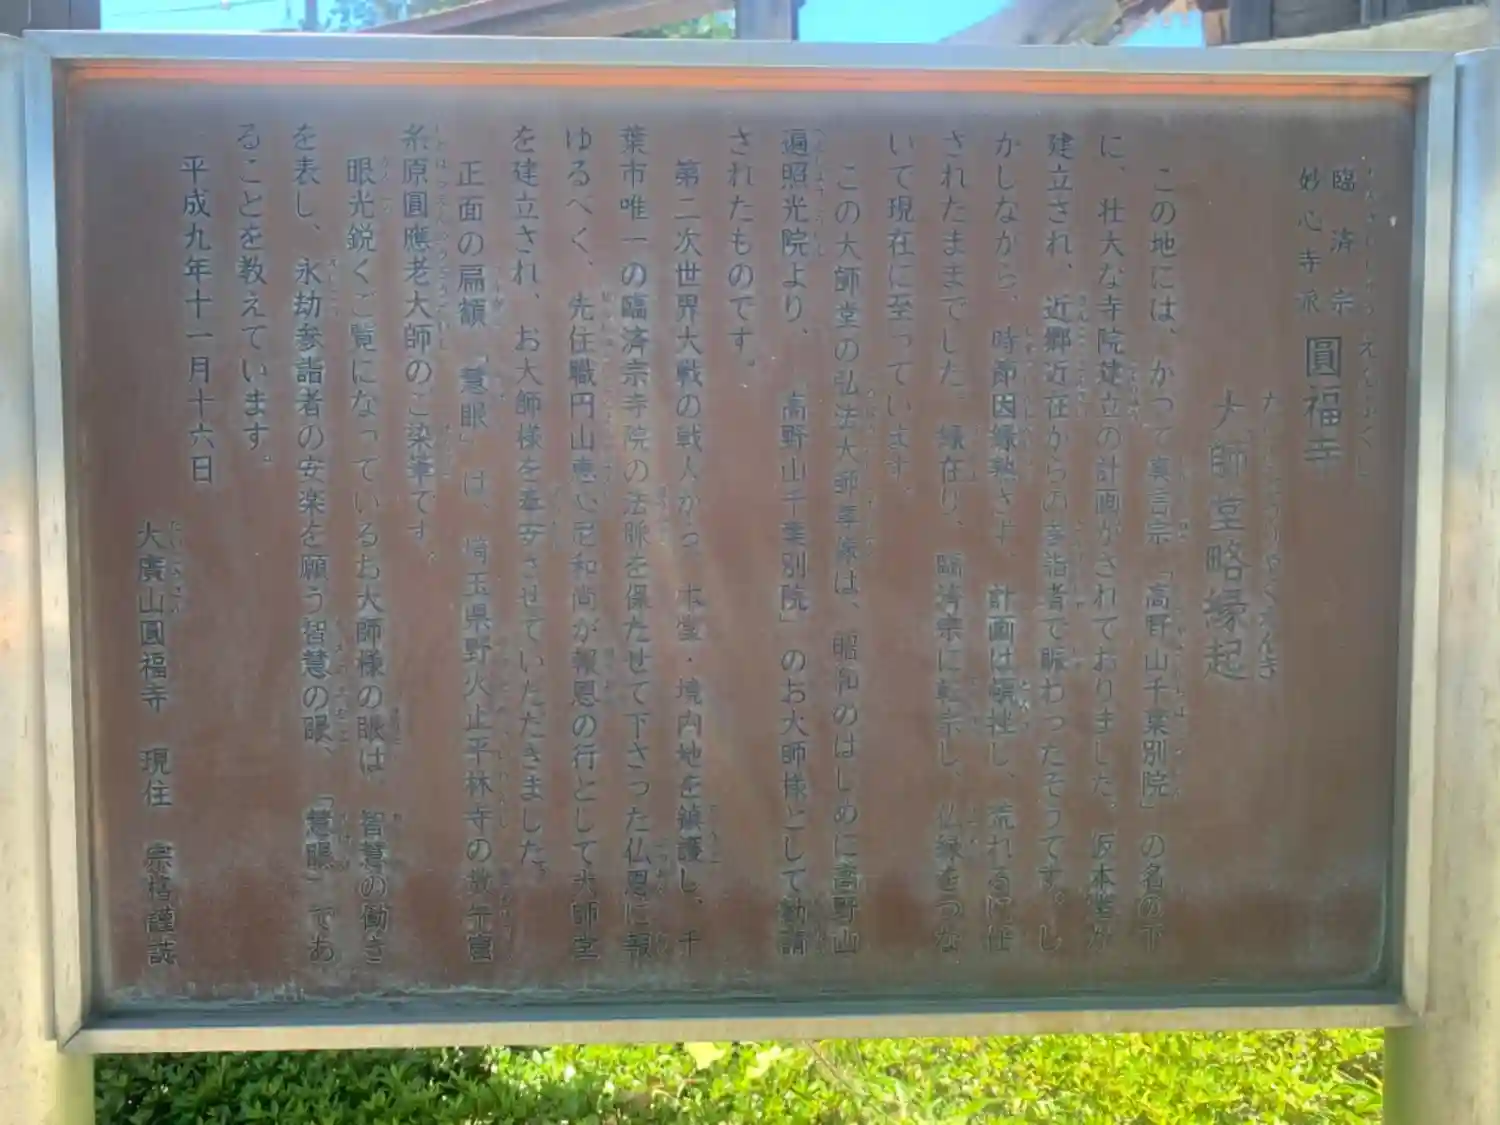 臨済宗
妙心寺派
圓福寺
大師堂略縁起
たいしどうりゃくえんぎ
この地には、かつて真言宗「高野山千葉別院」の名の下
に、壮大な寺院建立の計画がされておりました。仮本堂が
建立され、近郷近在からの参詣者で賑わったそうです。し
かしながら、時節因縁熟さず、計画は頓挫し、荒れるに任
されたままでした。縁在り、臨済宗に転宗し、仏縁をつな
いで現在に至っています。
この大師堂の弘法大師尊像は、昭和のはじめに高野山
遍照光院より、「高野山千葉別院」のお大師様として勧請
されたものです。
第二次世界大戦の戦人かつ、本堂・境内地を鎮護し、千
葉市唯一の臨済宗寺院の法脈を保たせて下さった仏恩に報
ゆるべく、先住職円山恵心尼和尚が報恩の行として大師堂
を建立され、お大師様を奉安させていただきました。
正面の扁額「慧眼」は、埼玉県野火止平林寺の
糸原圓應老大師のご染筆です。
眼光鋭くご覧になっているお大師様の眼は、智慧の働き
を表し、永劫参詣者の安楽を願う智慧の眼、「慧眼」であ
ることを教えています。
平成九年十一月十六日
大廣山圓福寺 現住 宗 謹誌